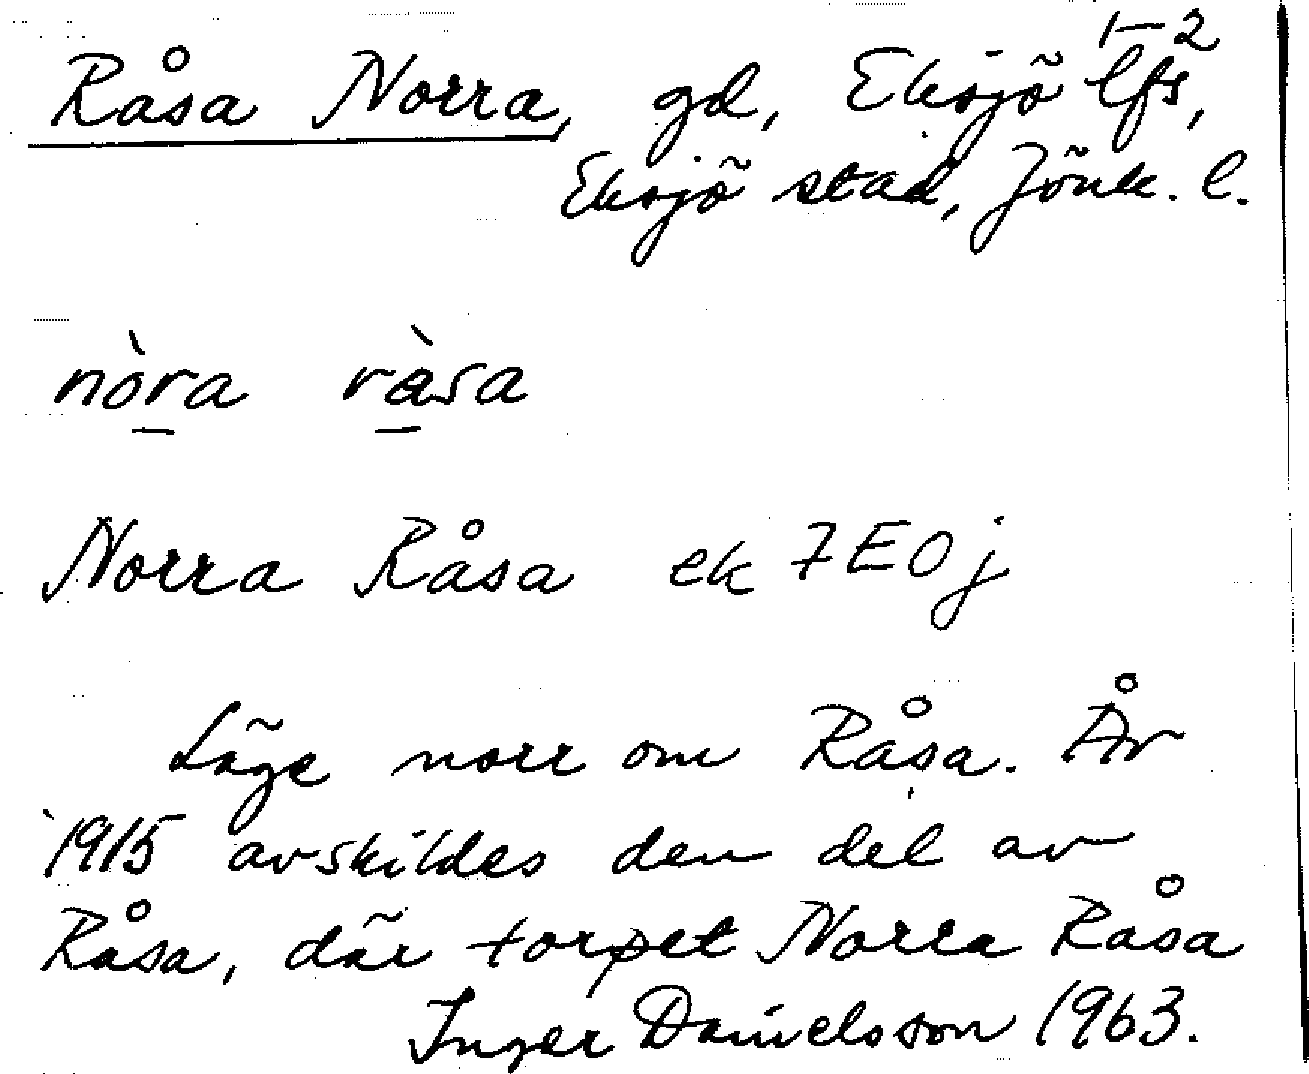 1–2
Råsa Norra, gd, Eksjö lfs,
Eksjö stad, Jönk. l.
nòra ràsa
Norra Råsa ek 7E0j
Läge norr om Råsa. År
1915 avskildes den del av
Råsa, där torpet Norra Råsa
Inger Danielsson 1963.